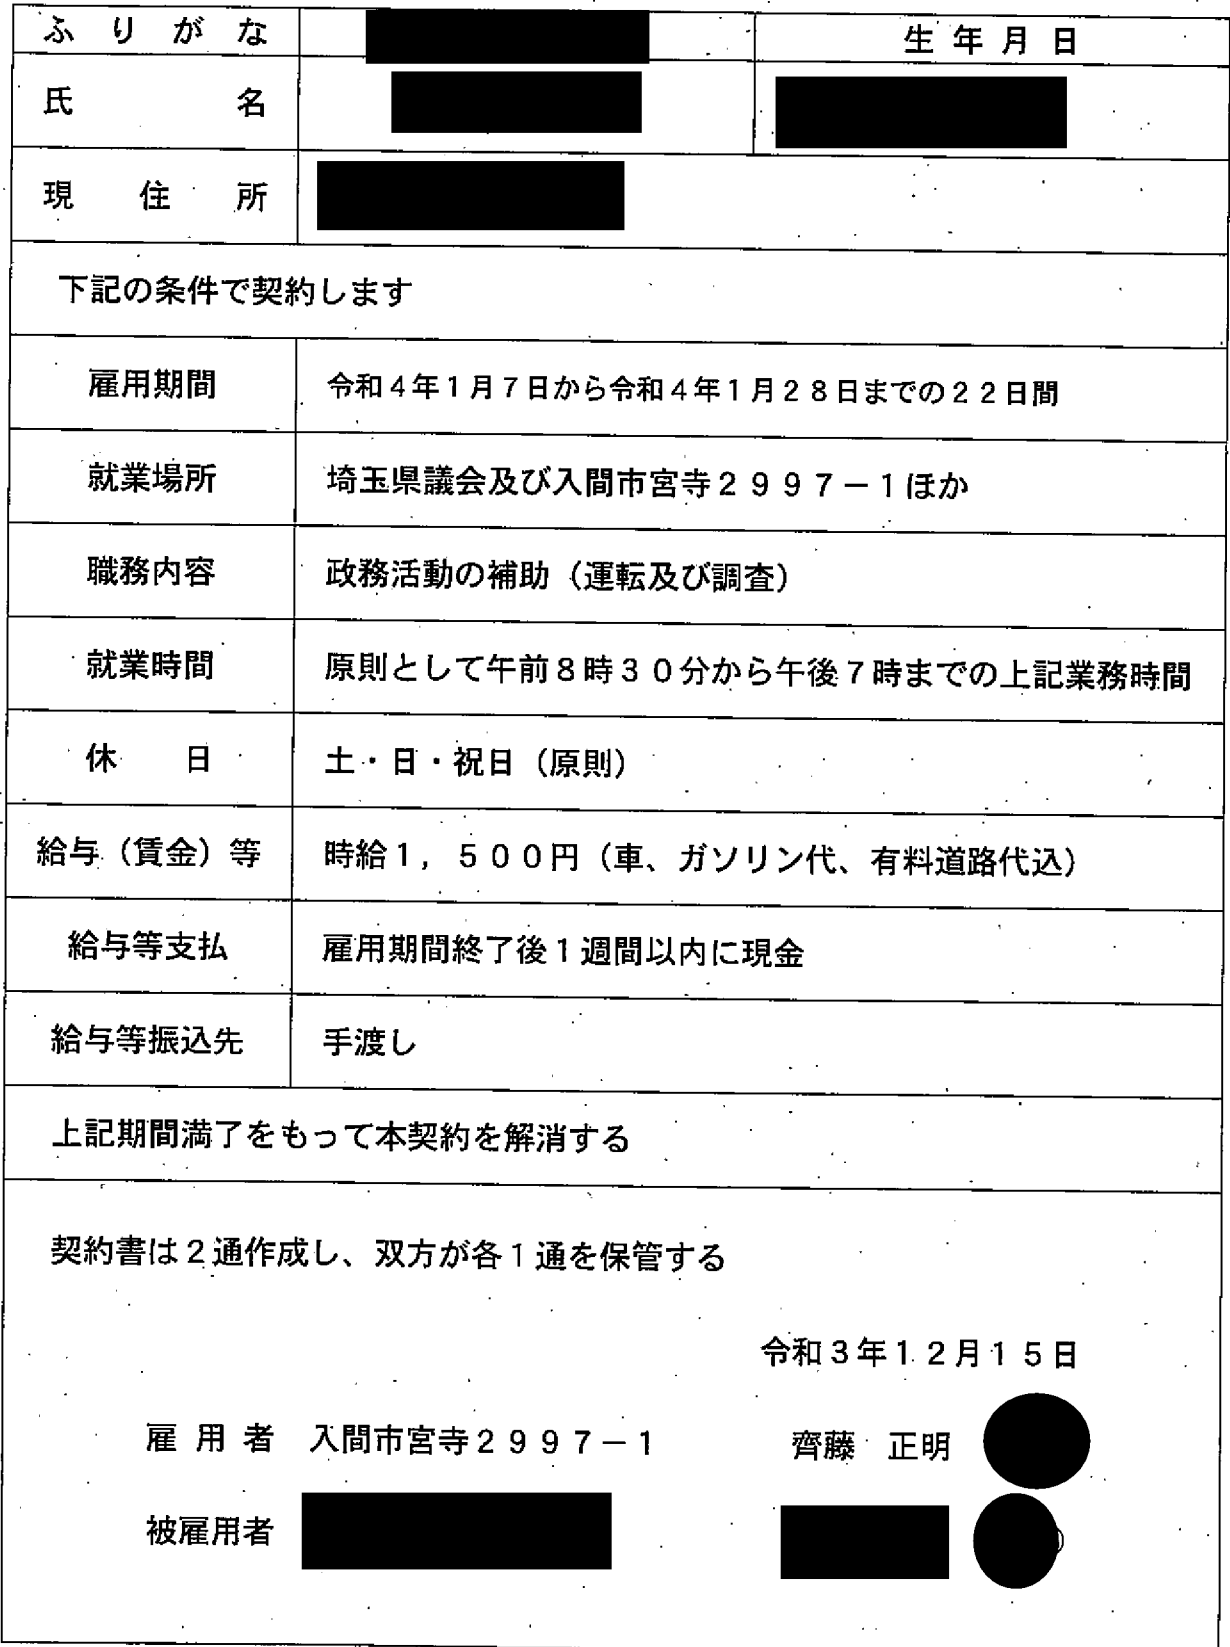 ふりがな
生年月日
氏名
現住所
下記の条件で契約します
雇用期間 令和4年1月7日から令和4年1月28日までの22日間
就業場所 埼玉県議会及び入間市宮寺2997-1ほか
職務内容 政務活動の補助（運転及び調査）
就業時間 原則として午前8時30分から午後7時までの上記業務時間
休日 土・日・祝日（原則）
給与（賃金）等 時給1，500円（車、ガソリン代、有料道路代込）
給与等支払 雇用期間終了後1週間以内に現金
給与等振込先 手渡し
上記期間満了をもって本契約を解消する
契約書は2通作成し、双方が各1通を保管する
令和3年12月15日
雇用者 入間市宮寺2997-1 齊藤 正明
被雇用者